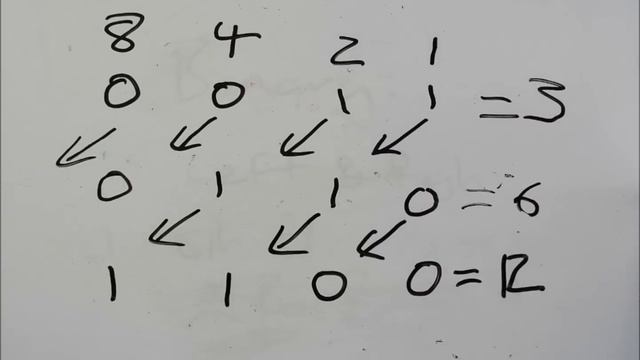 8 4 2 1
0 0 1 1 = 3
0 1 1 0 = 6
1 1 0 0 = 12